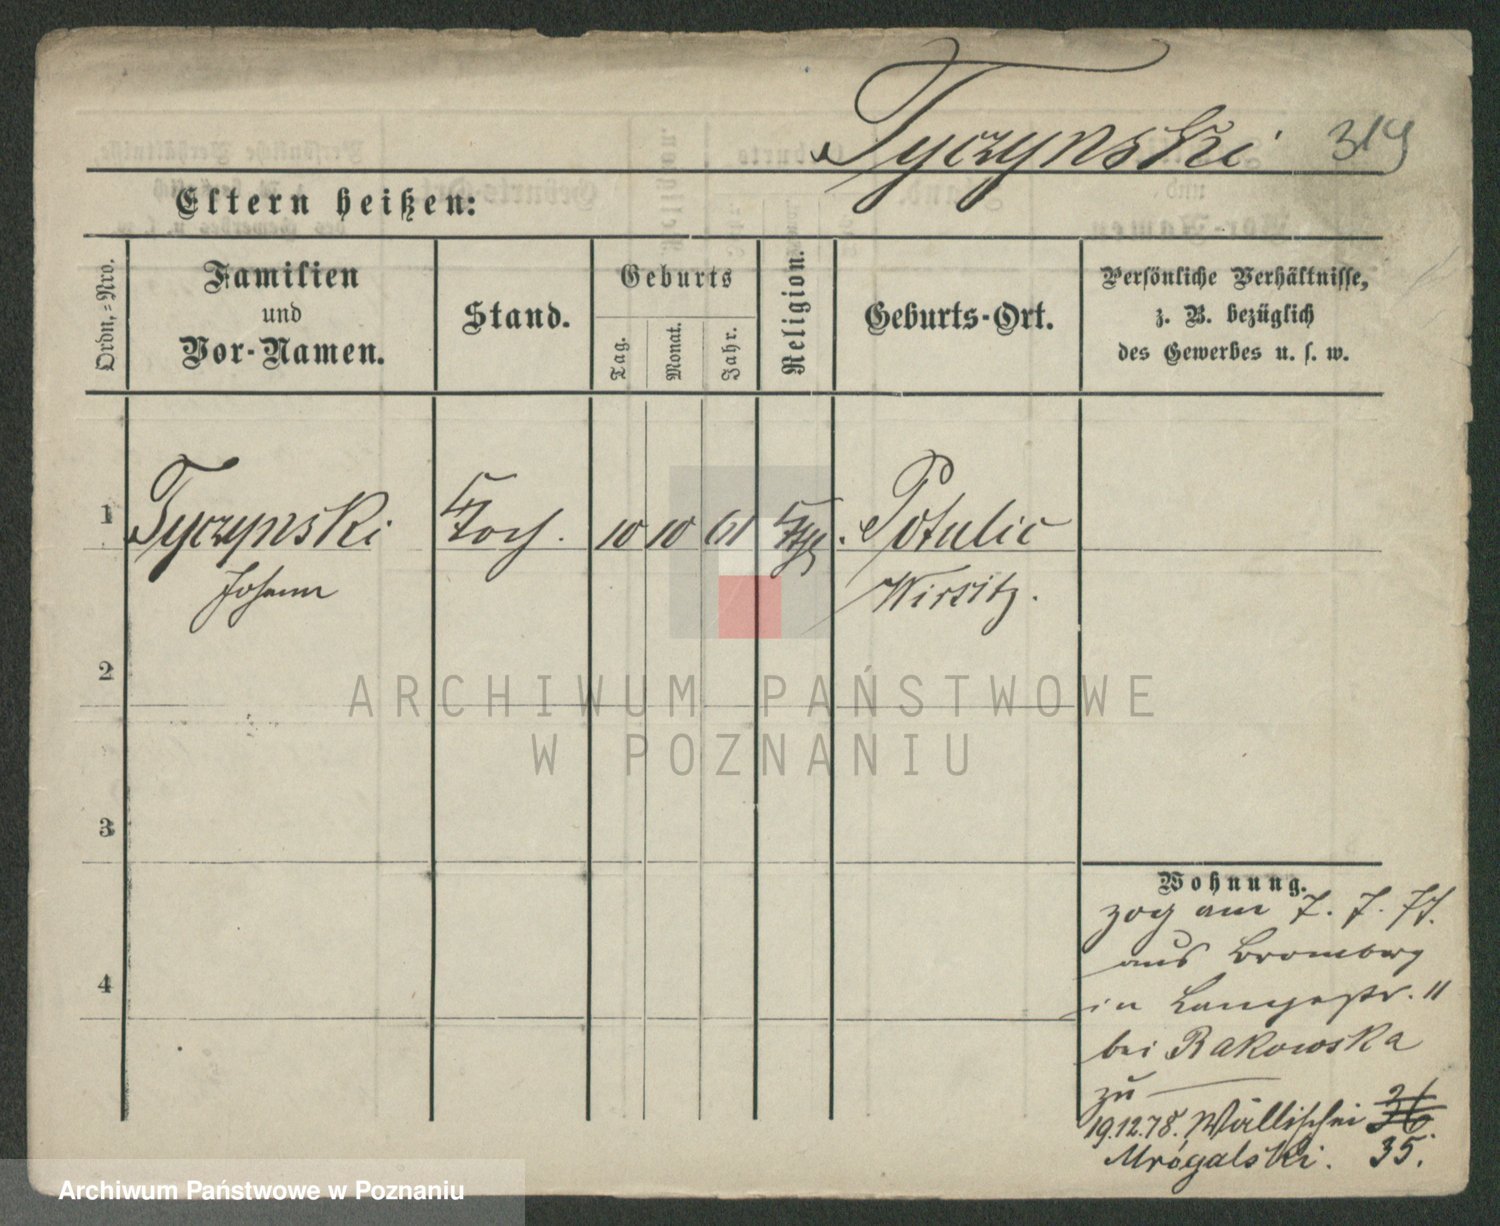 Tyczynski 319
Eltern heißen:
Ordn.-Nro.
Familien
und
Vor-Namen.
Stand.
Geburts
Tag.
Monat.
Jahr.
Religion.
Geburts-Ort.
Persönliche Verhältnisse,
z. B. bezüglich
des Gewerbes u. s. w.
1
Tyczynski
Johann
10 10 61
Potulic
Wirsitz.
2
ARCHIWUM PAŃSTWOWE
W POZNANIU
3
4
Wohnung.
zog am 7. 7. 77.
aus Bromberg
in Langestr. 11
bei Rakowska
zu
19.12.78. Wallischei 36
Mrógalski. 35.
Archiwum Państwowe w Poznaniu